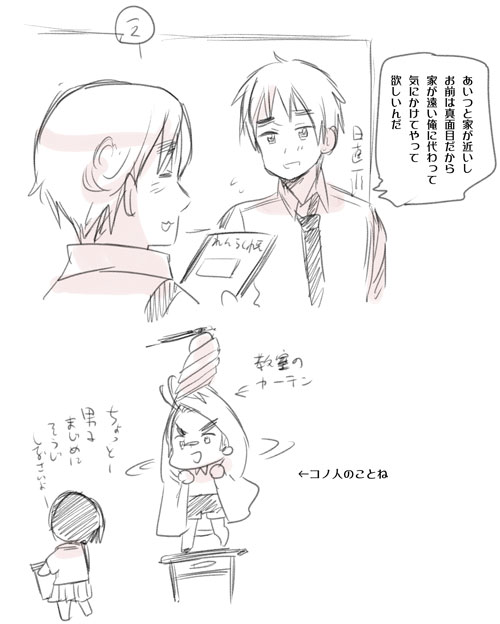 2
あいつと家が近いし
お前は真面目だから
家が遠い俺に代わって
気にかけてやって
欲しいんだ
日直
れんらくちょう
教室の
カーテン
ちょっとー
男子
まじめに
そうじ
しなさいよー
←コノ人のことね